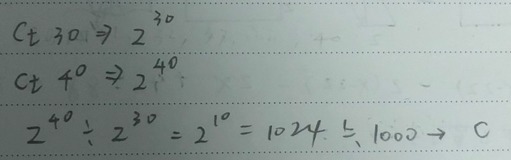 Ct 30 ⇒ 2^30
Ct 40 ⇒ 2^40
2^40 ÷ 2^30 = 2^10 = 1024 ≒ 1000 → C